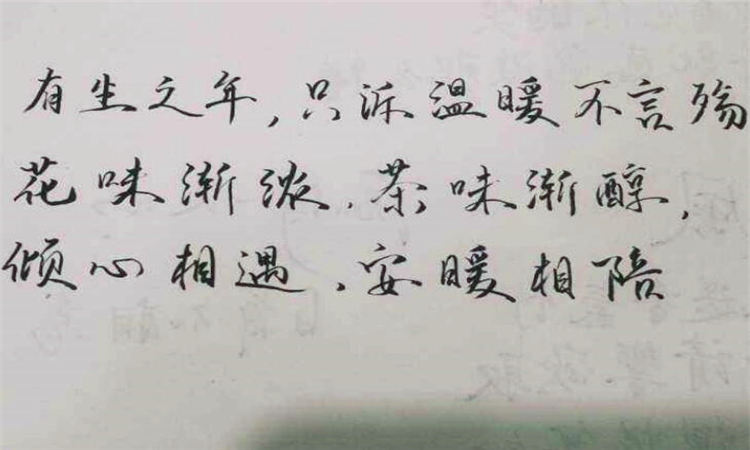 有生之年,只诉温暖不言殇
花味渐浓,茶味渐醇,
倾心相遇,安暖相陪